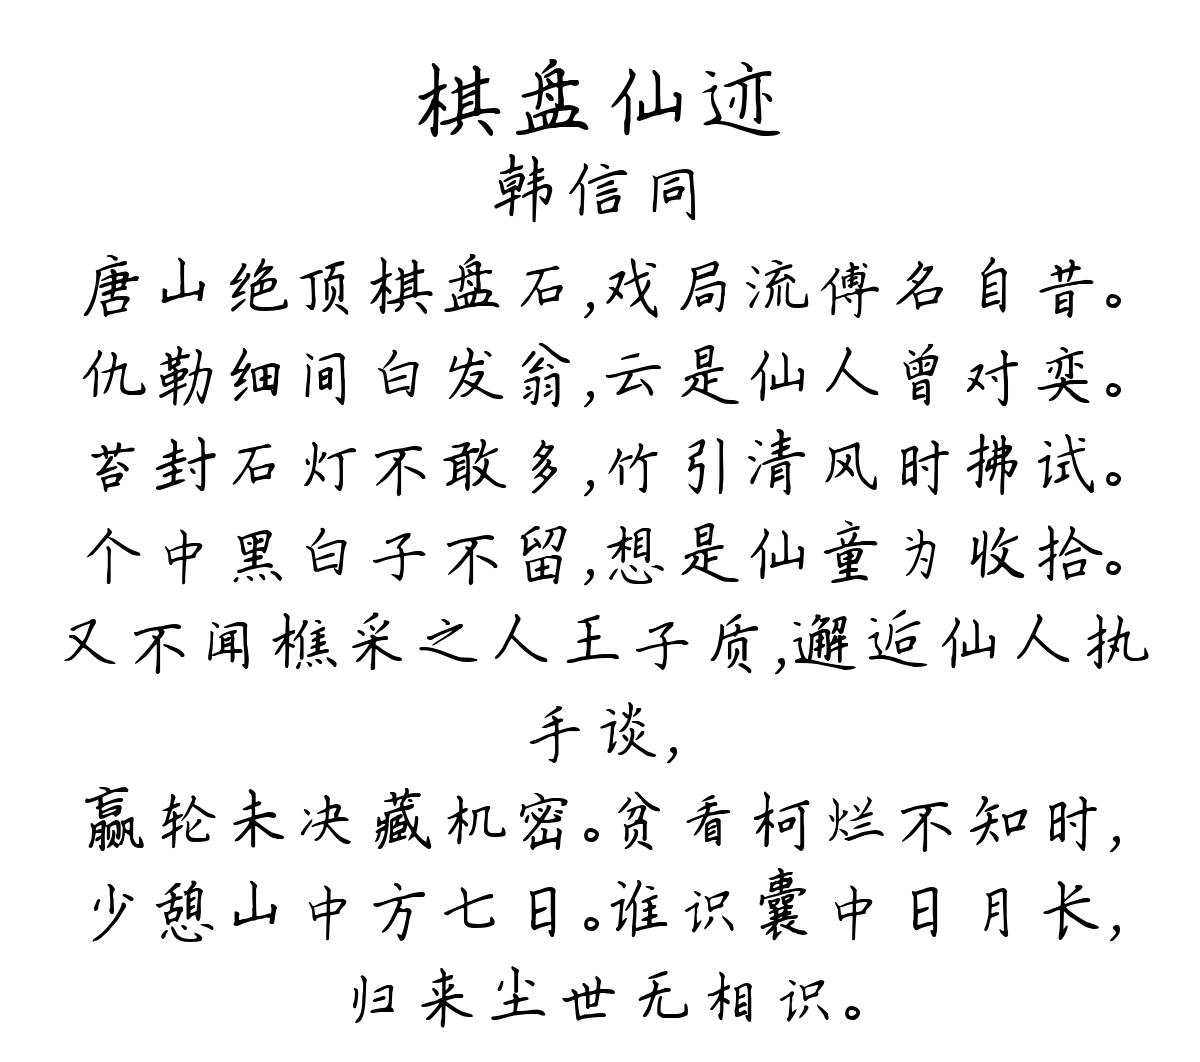 棋盘仙迹
韩信同
唐山绝顶棋盘石,戏局流傅名自昔。
仇勒细间白发翁,云是仙人曾对奕。
苔封石灯不敢多,竹引清风时拂试。
个中黑白子不留,想是仙童为收拾。
又不闻樵采之人王子质,邂逅仙人执
手谈,
赢轮未决藏机密。贫看柯烂不知时,
少憩山中方七日。谁识囊中日月长,
归来尘世无相识。